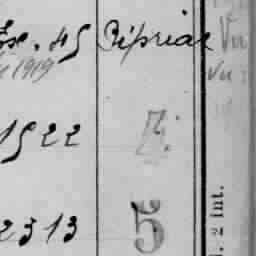 45 Pipriac Vu
1919 Vu
1522
2313 5
2 Int.